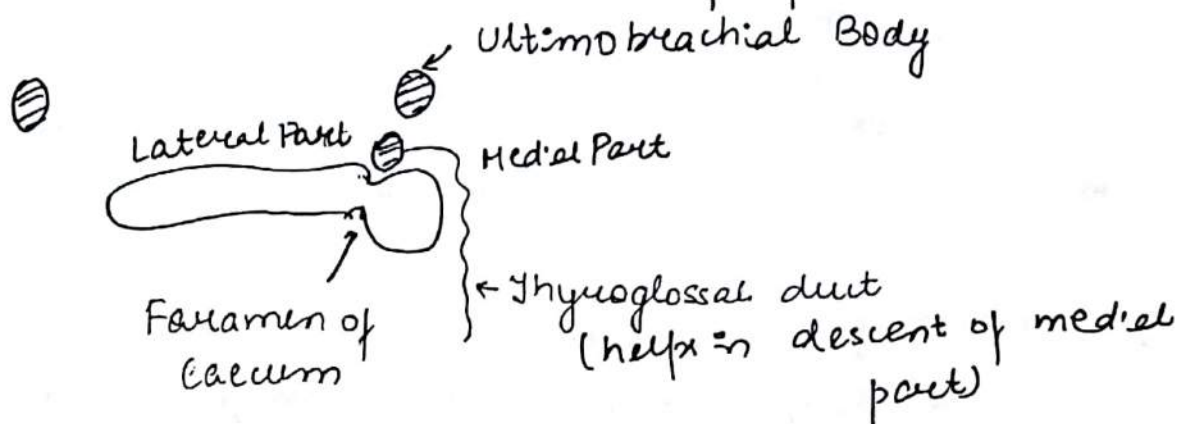 Ultimobrachial Body
Lateral Part
Medial Part
Foramen of
Caecum
← Thyroglossal duct
(helps in descent of medial
part)